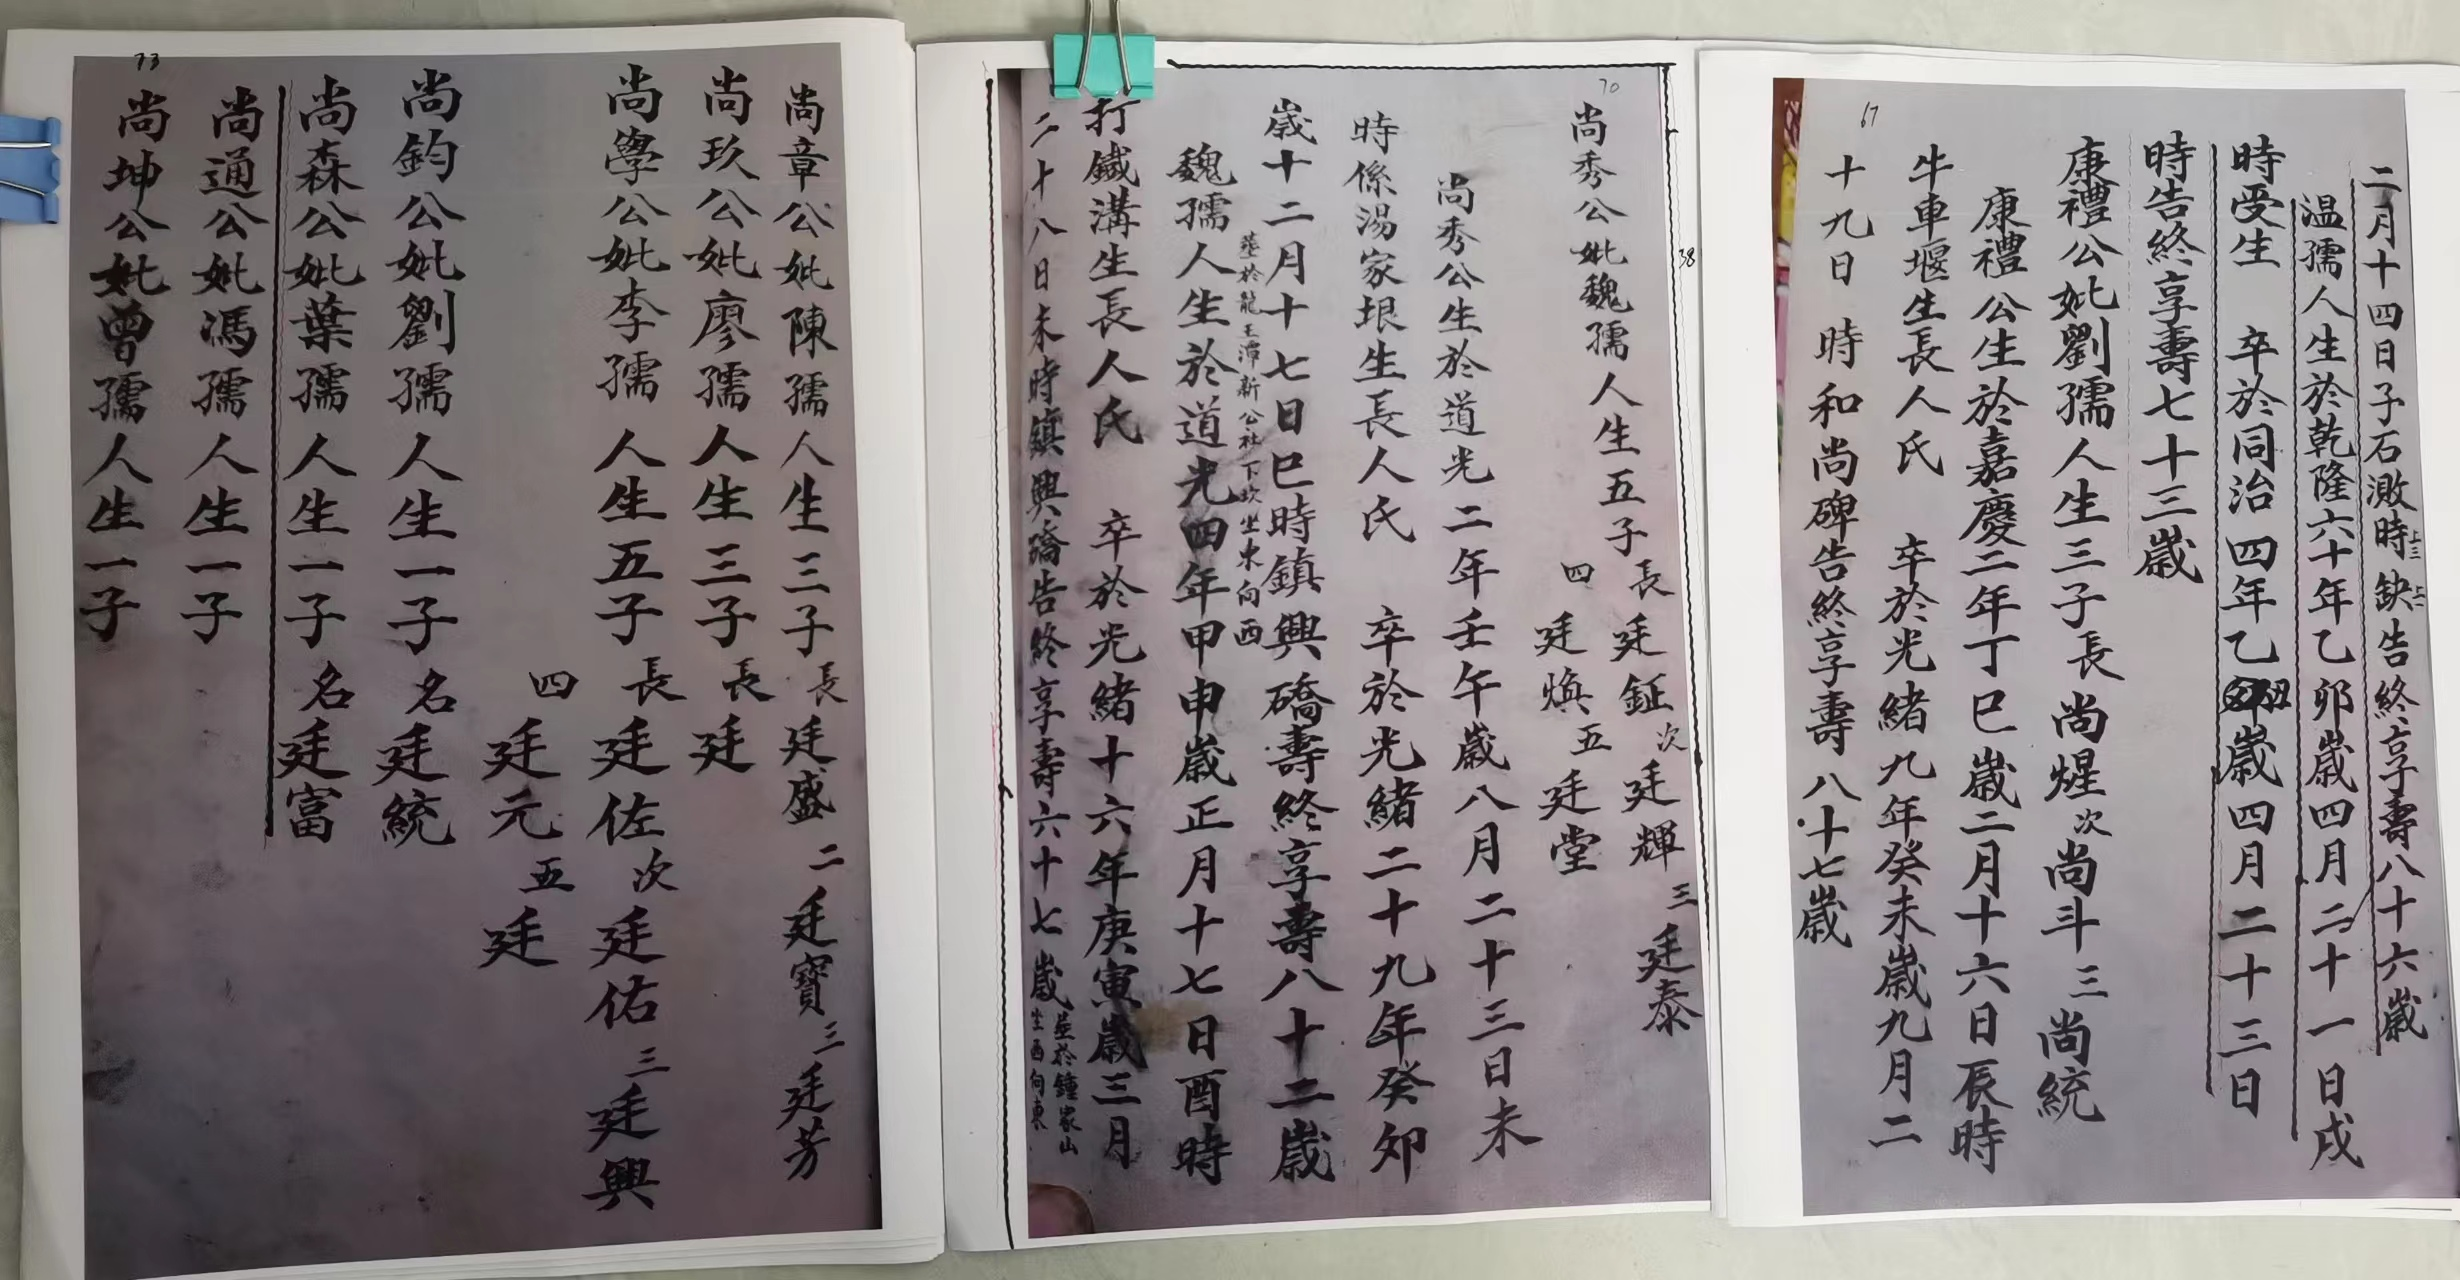 67
二月十四日子石潡時缺告終享壽八十六歲
温孺人生於乾隆六十年乙卯歲四月二十一日戌
時受生 卒於同治四年乙丑歲四月二十三日
時告終享壽七十三歲
康禮公妣劉孺人生三子長尚煋次尚斗三尚統
康禮公生於嘉慶二年丁巳歲二月十六日辰時
牛車堰生長人氏 卒於光緒九年癸未歲九月二
十九日 時和尚碑告終享壽八十七歲
70
38
尚秀公妣魏孺人生五子長廷鉦次廷輝三廷泰
四廷煥五廷堂
尚秀公生於道光二年壬午歲八月二十三日未
時係湯家垠生長人氏 卒於光緒二十九年癸卯
歲十二月十七日巳時鎮興礄壽終享壽八十二歲
葬於龍王潭新公社下坎坐東向西
魏孺人生於道光四年甲申歲正月十七日酉時
打鐵溝生長人氏 卒於光緒十六年庚寅歲三月
二十八日未時鎮興礄告終享壽六十七歲
葬於鍾家山
坐西向東
73
尚章公妣陳孺人生三子長廷盛二廷寶三廷芳
尚玖公妣廖孺人生三子長廷
尚學公妣李孺人生五子長廷佐次廷佑三廷興
四廷元五廷
尚鈞公妣劉孺人生一子名廷統
尚森公妣葉孺人生一子名廷富
尚通公妣馮孺人生一子
尚坤公妣曾孺人生一子